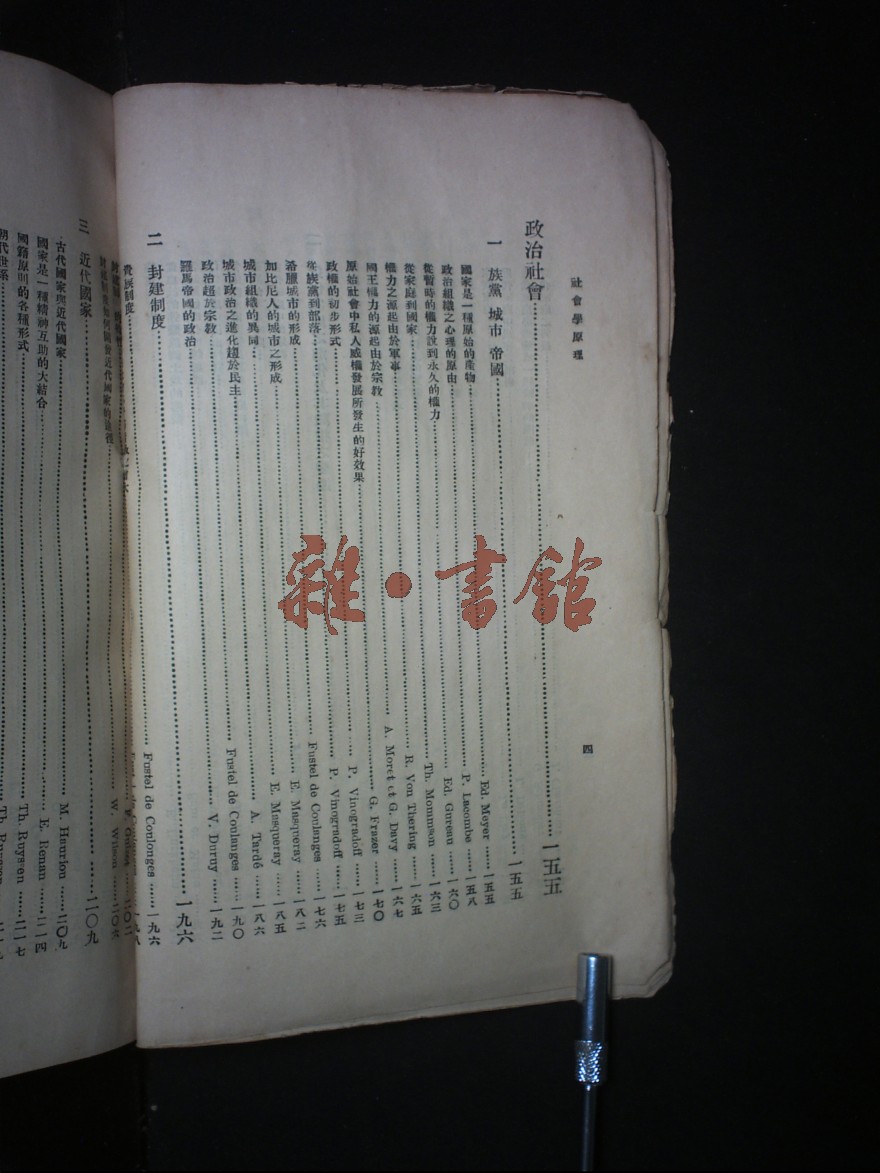 社會學原理
四
政治社會 一五五
一 族黨 城市 帝國 一五五
國家是一種原始的產物 Ed. Meyer 一五五
政治組織之心理的原由 P. Lacombe 一五八
從暫時的權力說到永久的權力 Ed. Gureau 一六〇
從家庭到國家 Th. Mommson 一六三
權力之源起由於軍事 R. Von Thering 一六五
國王權力的源起由於宗教 A. Moret et G. Davy 一六七
原始社會中私人威權發展所發生的好效果 G. Frazer 一七〇
政權的初步形式 P. Vinogradoff 一七三
從族黨到部落 P. Vinogradoff 一七五
希臘城市的形成 Fustel de Coulanges 一七六
加比尼人的城市之形成 E. Masqueray 一八二
城市組織的異同 E. Masqueray 一八五
城市政治之進化趨於民主 A. Tardé 一八六
政治超於宗教 Fustel de Coulanges 一九〇
羅馬帝國的政治 V. Duruy 一九二
二 封建制度 一九六
貴族制度 Fustel de Coulonges 一九六
近代國家的途徑 W. Wilson 二〇六
三 近代國家 二〇九
古代國家與近代國家 M. Haurion 二〇九
國家是一種精神互助的大結合 E. Renan 二一四
國籍原則的各種形式 Th. Ruyssen 二一七
朝代世系 Th. Ruyssen
雜·書館